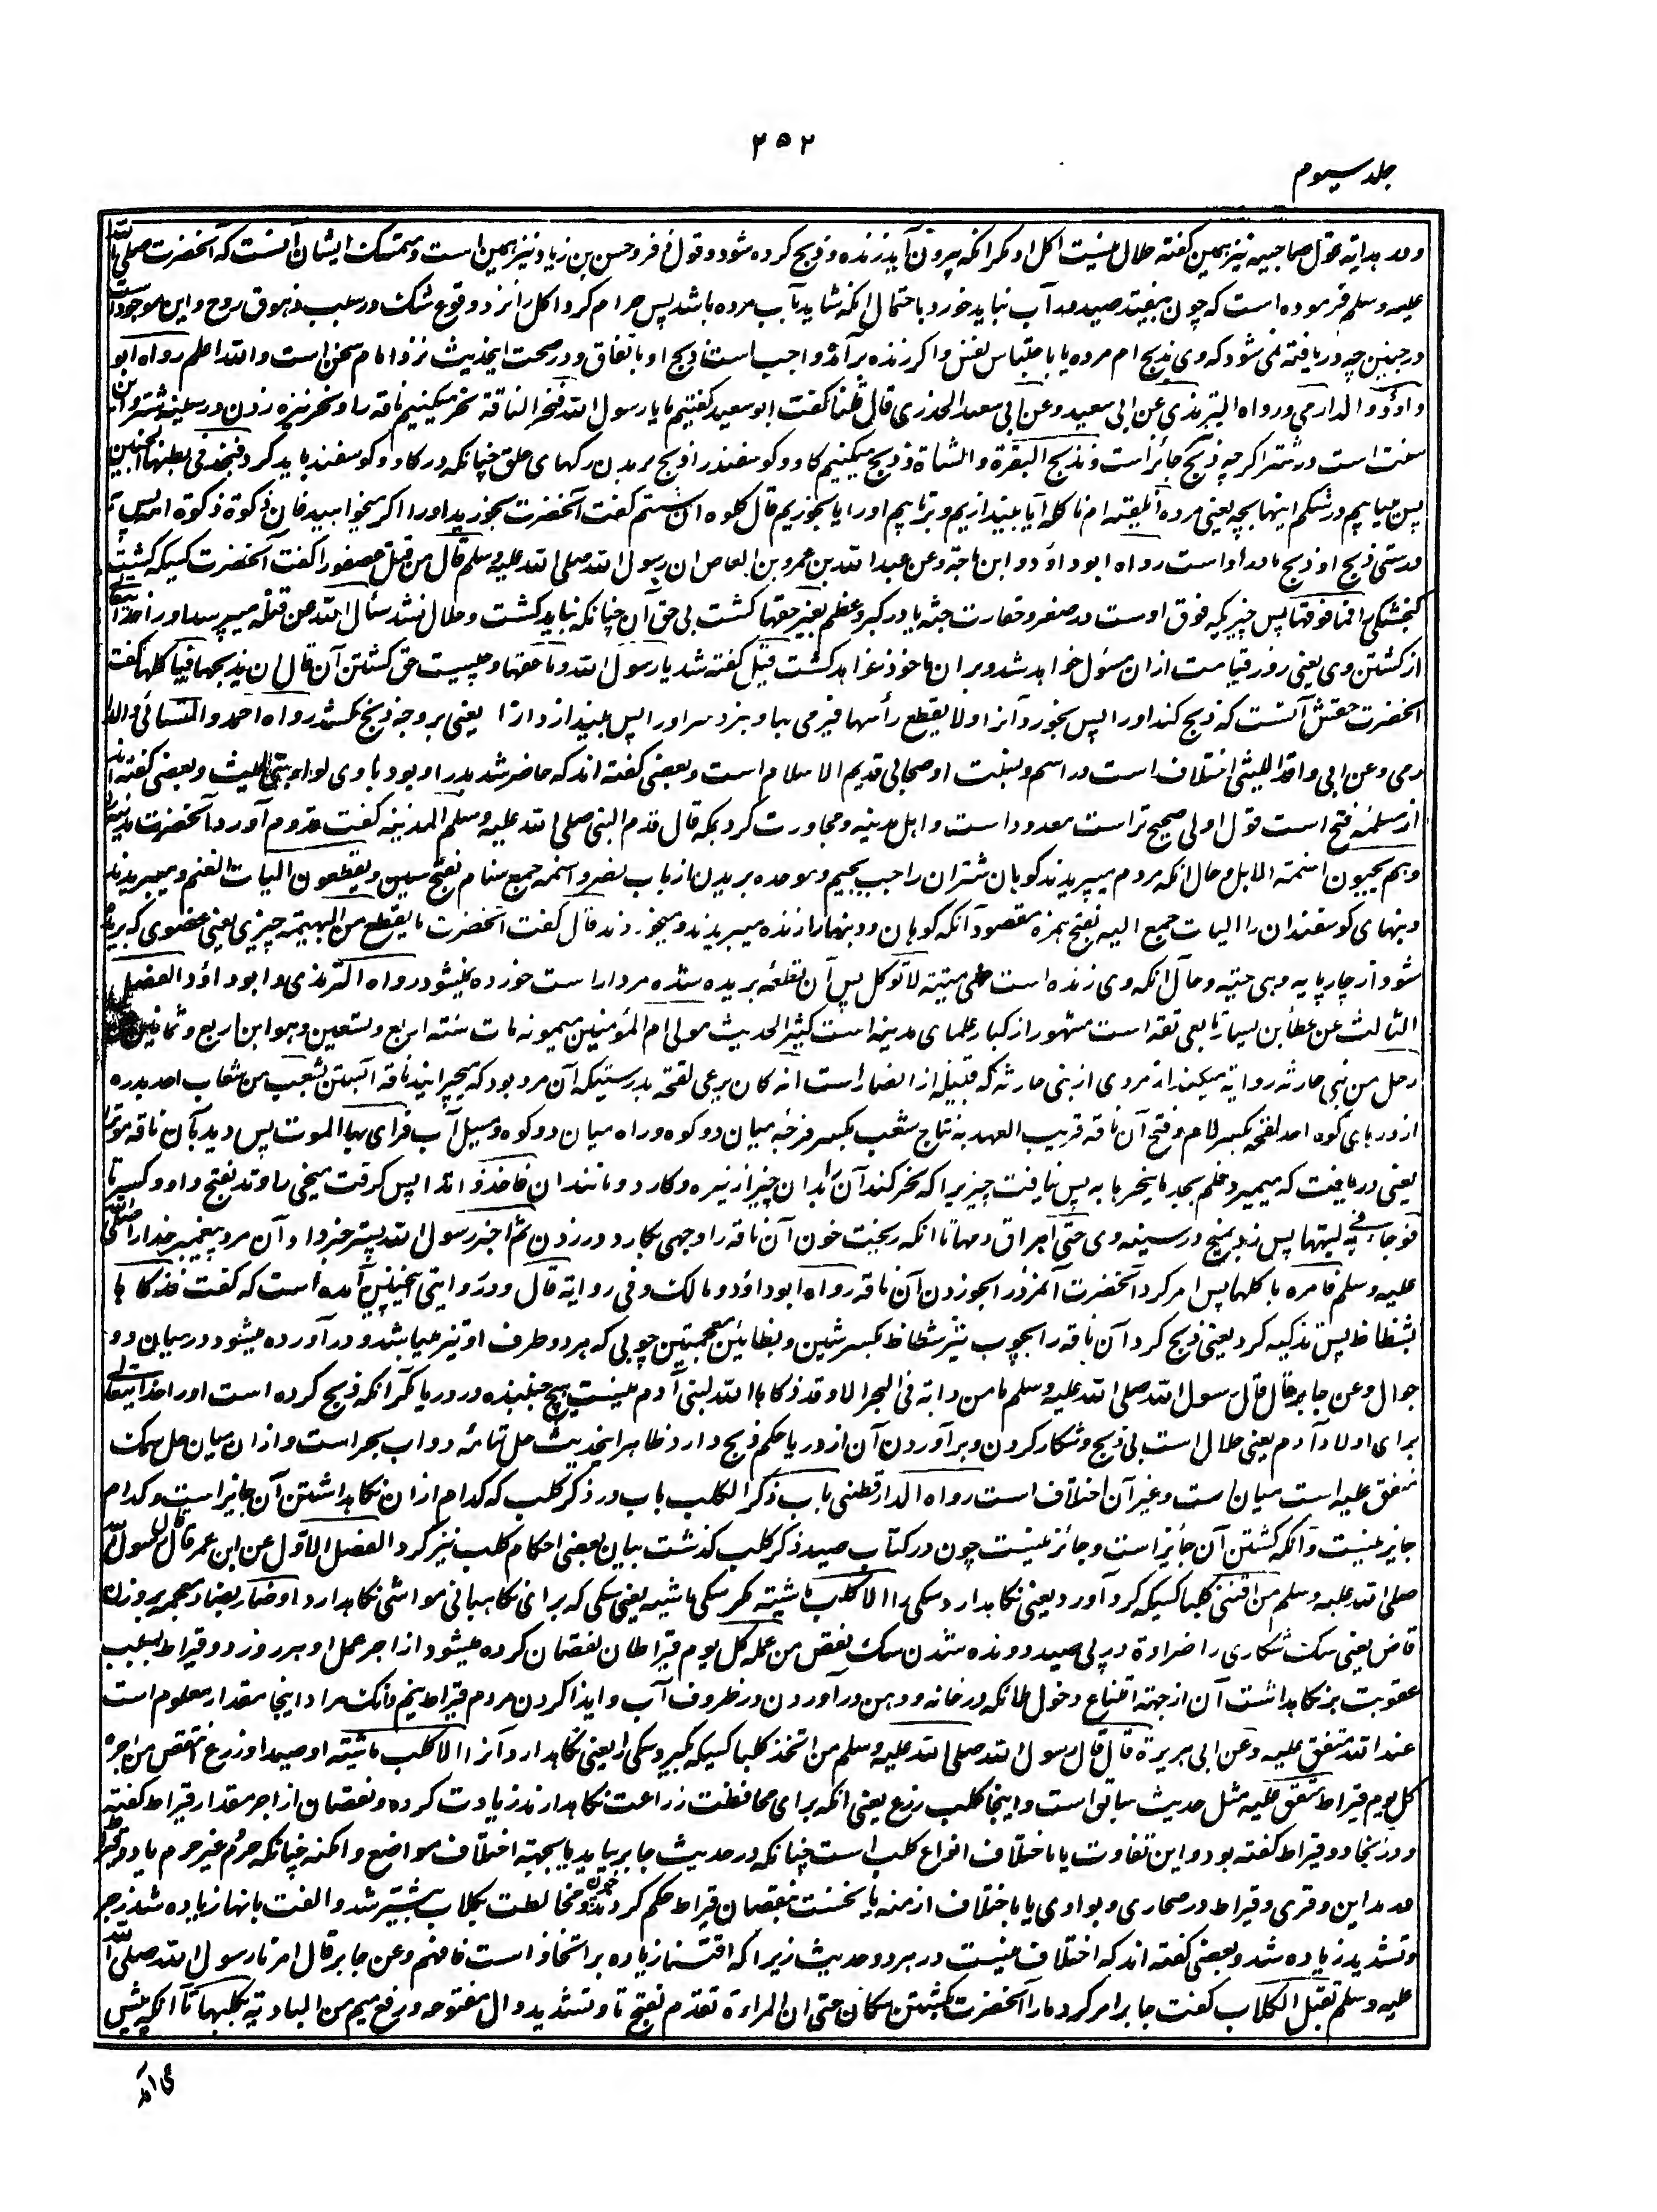 ۲۵۲
جلد سیوم
ودر هدایه بقول صاحبیه نیز همین گفته حلال نیست اکل او مگر انکه بیرون آید زنده و ذبح کرده شود و قول زفر و حسن بن زیاد نیز همین است و متمسک ایشان آنست که آنحضرت صلی الله
علیه وسلم فرموده است که چون بیفتد صید در آب نباید خورد باحتمال انکه شاید بآب مرده باشد پس حرام کرد اکل را نزد وقوع شک در سبب زهوق روح و این موجود است
در جنین چه دریافته نمی شود که وی بذبح ام مرده یا باحتباس نفس و اگر زنده برآمد واجب است ذبح او باتفاق و در صحت ایحدیث نزد امام سخن است والله اعلم رواه ابو
داؤد والدارمی ورواه الترمذی عن ابی سعید وعن ابی سعید الخدری قال قلنا گفت ابو سعید گفتیم ما یا رسول الله ننحر الناقة نحر میکنیم ناقه را و نحر نیزه زدن در سینه شتر و آن
سنت است در شتر اگرچه ذبح جائز است ونذبح البقرة والشاة و ذبح میکنیم گاو و گوسفند را و ذبح بریدن رگهای حلق چنانکه در گاو و گوسفند باید کرد فنجد فی بطنها الجنین
پس میابیم در شکم اینها بچه یعنی مرده انلقیه ام ناکله آیا بیندازیم و برتابیم او را یا بخوریم قال کلوه ان شئتم گفت آنحضرت بخورید او را اگر میخواهید فان ذکوته ذکوة امه پس بد
رستی ذبح او ذبح مادر او است رواه ابو داؤد وابن ماجة وعن عبد الله بن عمرو بن العاص ان رسول الله صلی الله علیه وسلم قال من قتل عصفورا گفت آنحضرت کسیکه کشت
گنجشکی را فما فوقها پس چیزیکه فوق اوست در صغر و حقارت جثه یا در کبر و عظم بغیر حقها کشت بی حق آن چنانکه نباید کشت و حلال نشد سأل الله عن قتله میپرسد او را خدایتعالی
از کشتن وی یعنی روز قیامت ازان مسئول خواهد شد و بران ماخوذ خواهد گشت قیل گفته شد یا رسول الله وما حقها و چیست حق کشتن آن قال ان یذبحها فیاکلها گفت
آنحضرت حقش آنست که ذبح کند او را پس بخورد آنرا ولا یقطع رأسها فیرمی بها و نبرد سر او را پس بیندازد آنرا یعنی بر وجه ذبح بکشد رواه احمد والنسائی والدا
رمی وعن ابی واقد اللیثی اختلاف است در اسم و نسبت او صحابی قدیم الاسلام است و بعضی گفته اند که حاضر شد بدر را و بود با وی لوای بنی اللیث و بعضی گفته اند
از مسلمه فتح است و قول اولی صحیح تر است معدود است و اهل مدینه و مجاورت کرد بمکه قال قدم النبی صلی الله علیه وسلم المدینة گفت قدوم آورد آنحضرت مدینه را
وهم یجبون اسنمة الابل و حال انکه مردم میبریدند کوهان شتران را جب بجیم و موحده بریدن از باب نصر و اسنمه جمع سنام بفتح سین ویقطعون الیات الغنم و میبریدند
دنبهای گوسفندان را الیات جمع الیه بفتح همزه مقصود آنکه کوهان و دنبها را زنده میبریدند و میخوردند فقال گفت آنحضرت ما یقطع من البهیمة چیزی یعنی عضوی که بریده
شود از چارپایه وهی حیة و حال انکه وی زنده است فهی میتة لا توکل پس آن قطعه بریده شده مردار است خورده نمیشود رواه الترمذی وابو داؤد الفصل
الثالث عن عطاء بن یسار تابعی ثقه است مشهور از کبار علمای مدینه است کثیر الحدیث مولی ام المؤمنین میمونه مات سنة اربع وتسعین وهو ابن اربع وثمانین عن
رجل من بنی حارثة روایة میکند از مردی از بنی حارثه که قبیله از انصار است انه کان یرعی لقحة بدرستیکه آن مرد بود که میچرانید ناقه آبستن بشعب من شعاب احد بدره
از درهای کوه احد لقحه بکسر لام و فتح آن ناقه قریب العهد به نتاج شعب بکسر فرجه میان دو کوه و راه میان دو کوه و مسیل آب فرای بها الموت پس دید بآن ناقه موت را
یعنی دریافت که میمیرد فلم یجد ما ینحرها به پس نیافت چیزیرا که نحر کند آن را بدان چیز از نیزه و کارد و مانند ان فاخذ وتدا پس گرفت میخی را وتد بفتح واو و کسر تا
فوجأ به فی لبتها پس زد بمیخ در سینه وی حتی اهراق دمها تا انکه ریخت خون آن ناقه را وجی بکارد و در زدن ثم اخبر رسول الله پستر خبر داد آن مرد پیغمبر خدا را صلی الله
علیه وسلم فامره باکلها پس امر کرد آنحضرت آنمرد را بخوردن آن ناقه رواه ابو داؤد ومالک وفی روایة قال ودر روایتی اینچنین آمده است که گفت فذکاها
بشظاظ پس تذکیه کرد یعنی ذبح کرد آن ناقه را بچوب تیز شظاظ بکسر شین و بظائین معجمتین چوبی که هر دو طرف او تیز میباشد و درآورده میشود در میان دو
جوال وعن جابر قال قال رسول الله صلی الله علیه وسلم ما من دابة فی البحر الا وقد ذکاها الله لبنی آدم نیست هیچ جنبنده در دریا مگر آنکه ذبح کرده است او را خدایتعالی
برای اولاد آدم یعنی حلال است بی ذبح و شکار کردن و برآوردن آن از دریا حکم ذبح دارد ظاهر ایحدیث حل تمامه دواب بحر است و ازان میان حل سمک
متفق علیه است میان امت و غیر آن اختلاف است رواه الدارقطنی باب ذکر الکلب باب در ذکر کلب که کدام ازان نگاهداشتن آن جایز است و کدام
جایز نیست و آنکه کشتن آن جائز است و جائز نیست چون در کتاب صید ذکر کلب گذشت بیان بعضی احکام کلب نیز کرد الفصل الاول عن ابن عمر قال قال رسول الله
صلی الله علیه وسلم من اقتنی کلبا کسیکه گرد آورد یعنی نگاهدارد سگی را الا کلب ماشیة مگر سگی ماشیه یعنی سگی که برای نگاهبانی مواشی نگاهدارد او ضار بضاد معجمه بر وزن
قاض یعنی سگ شکاری را ضراوة در پی صید دونده شدن سگ نقص من عمله کل یوم قیراطان نقصان کرده میشود از اجر عمل او هر روز دو قیراط بسبب
عقوبت بر نگاهداشت آن از جهة امتناع دخول ملائکه در خانه و دهن درآوردن در ظروف آب و ایذا کردن مردم قیراط نیم دانگ مراد اینجا مقدار معلوم است
عند الله متفق علیه وعن ابی هریرة قال قال رسول الله صلی الله علیه وسلم من اتخذ کلبا کسیکه بگیرد سگی را یعنی نگاهدارد آنرا الا کلب ماشیة او صید او زرع انتقص من اجره
کل یوم قیراط متفق علیه مثل حدیث سابق است و اینجا کلب زرع یعنی انکه برای محافظت زراعت نگاهدارند زیادت کرده و نقصان از اجر مقدار قیراط گفته
و در آنجا دو قیراط گفته بود و این تفاوت یا باختلاف انواع کلب است چنانکه در حدیث جابر بیاید یا بجهة اختلاف مواضع و امکنه چنانکه حرم و غیر حرم یا دو قیراط
در مداین و قری و قیراط در صحاری و بوادی یا باختلاف ازمنه یا نخست بنقصان قیراط حکم کردند و چون مخالطت بکلاب بیشتر شد و الفت بانها زیاده شد زجر
و تشدید زیاده شد و بعضی گفته اند که اختلاف نیست در هر دو حدیث زیرا که اقتنا زیاده بر اتخاذ است فافهم وعن جابر قال امرنا رسول الله صلی الله
علیه وسلم بقتل الکلاب گفت جابر امر کرد ما را آنحضرت بکشتن سگان حتی ان المراءة تقدم بفتح تا و تشدید دال مفتوحه و رفع میم من البادیة بکلبها تا انکه پیش